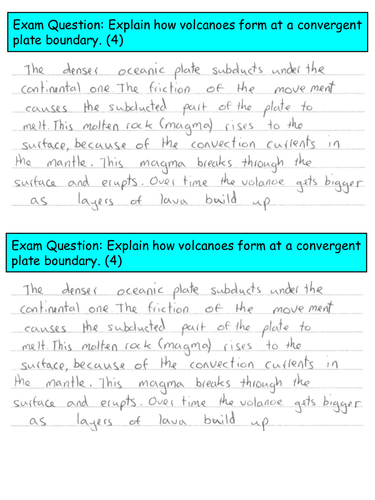 Exam Question: Explain how volcanoes form at a convergent
plate boundary. (4)
The denser oceanic plate subducts under the
continental one. The friction of the movement
causes the subducted part of the plate to
melt. This molten rock (magma) rises to the
surface, because of the convection currents in
the mantle. This magma breaks through the
surface and erupts. Over time the volanoe gets bigger
as layers of lava build up
Exam Question: Explain how volcanoes form at a convergent
plate boundary. (4)
The denser oceanic plate subducts under the
continental one The friction of the movement
causes the subducted part of the plate to
melt. This molten rock (magma) rises to the
surface, because of the convection currents in
the mantle. This magma breaks through the
surface and erupts. Over time the volanoe gets bigger
as layers of lava build up